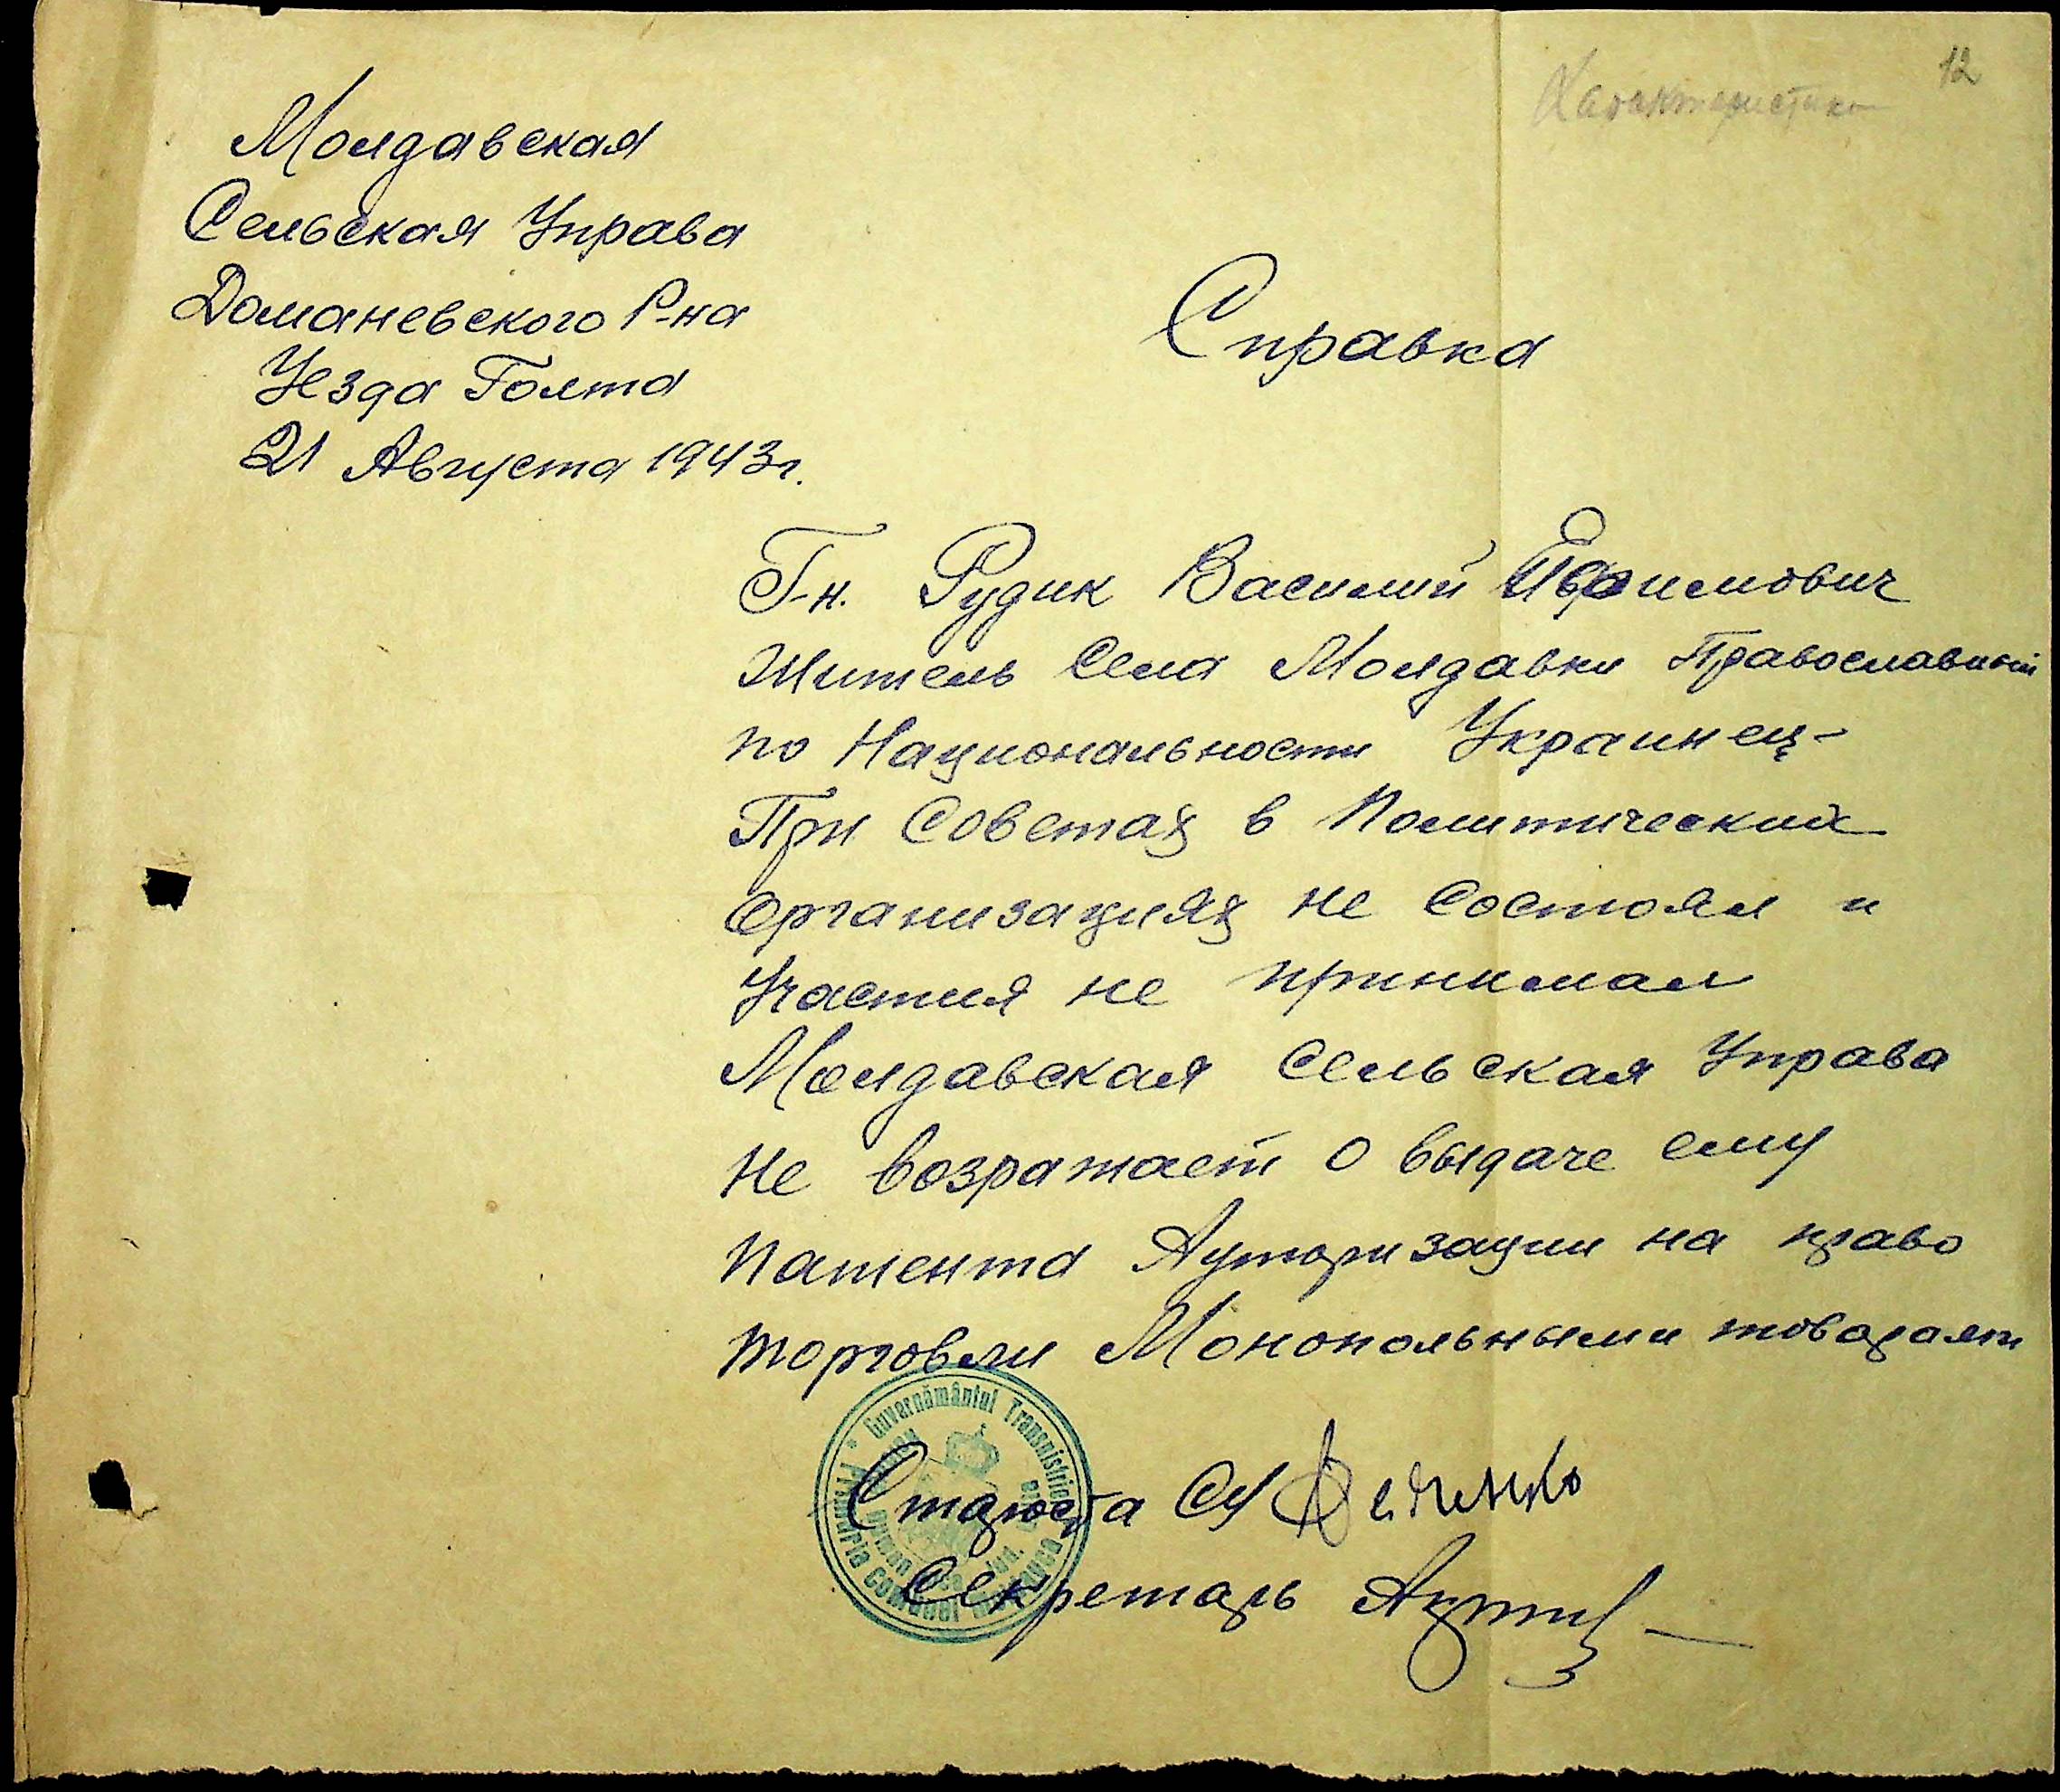 12
Характеристика
Молдавская
Сельская Управа
Доманевского Р-на
Уезда Голта
21 Августа 1943г.
Справка
Г-н. Рудик Василий Ефимович
Житель Села Молдавки Православный
по Национальности Украинец-
При Советах в Политический
Организациях не Состоял и
Участия не принимал
Молдавская Сельская Управа
не возражает о выдаче ему
патента Ауторизации на право
торговли Монопольными товарами
Guvernământul Transnistriei
Primăria Comunei
Староста СУ
Секретарь